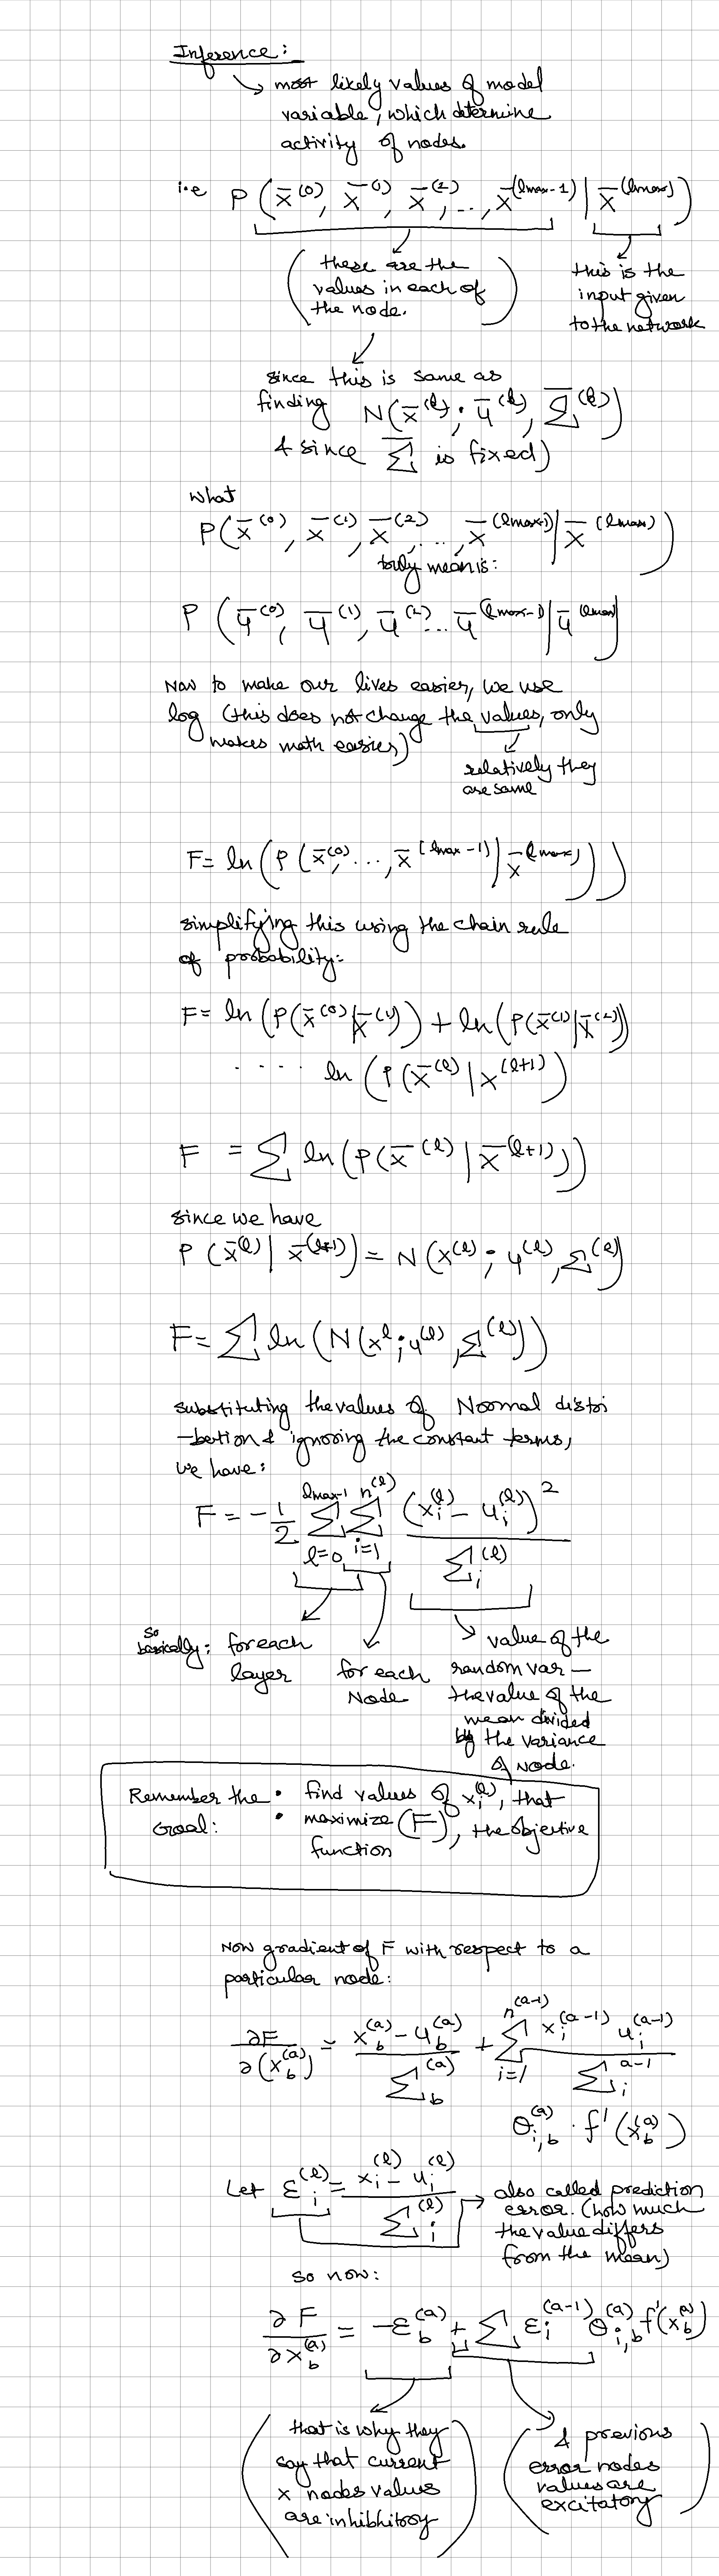 Inference:
↳ most likely values of model
variable, which determine
activity of nodes.
i.e P(x̄^(0), x̄^(1), x̄^(2), ..., x̄^(lmax-1) | x̄^(lmax))
(these are the
values in each of
the node.)
this is the
input given
to the network
since this is same as
finding N(x̄^(l); ū^(l), Σ̄^(l))
& since Σ̄ is fixed)
what
P(x̄^(0), x̄^(1), x̄^(2), ..., x̄^(lmax-1) | x̄^(lmax))
truly mean is:
P(ū^(0), ū^(1), ū^(2)... ū^(lmax-1) | ū^(lmax))
Now to make our lives easier, we use
log (this does not change the values, only
makes math easier)
relatively they
are same
F = ln(P(x̄^(0), ..., x̄^(lmax-1) | x̄^(lmax)))
simplifying this using the chain rule
of probability:
F = ln(P(x̄^(0) | x̄^(1))) + ln(P(x̄^(1) | x̄^(2)))
.... ln(P(x̄^(l) | x^(l+1)))
F = Σ ln(P(x̄^(l) | x̄^(l+1)))
since we have
P(x̄^(l) | x̄^(l+1)) = N(x^(l); u^(l), Σ^(l))
F = Σ ln(N(x^l; u^(l), Σ^(l)))
substituting the values of Normal distri
-bution & ignoring the constant terms,
we have:
F = -1/2 Σ_{l=0}^{lmax-1} Σ_{i=1}^{n^(l)} (x_i^(l) - u_i^(l))^2 / Σ_i^(l)
so
basically: for each
layer
for each
Node
value of the
random var -
the value of the
mean divided
by the variance
of node.
Remember the
Goal:
• find values of x_i^(l), that
• maximize (F), the objective
function
Now gradient of F with respect to a
particular node:
∂F/∂(x_b^(a)) = (x_b^(a) - u_b^(a)) / Σ_b^(a) + Σ_{i=1}^{n^(a-1)} (x_i^(a-1) u_i^(a-1)) / Σ_i^{a-1}
θ_{i,b}^(a) · f'(x_b^(a))
Let ε_i^(l) = (x_i^(l) - u_i^(l)) / Σ_i^(l)
also called prediction
error. (how much
the value differs
from the mean)
so now:
∂F/∂x_b^(a) = -ε_b^(a) + Σ ε_i^(a-1) θ_{i,b}^(a) f'(x_b^(a))
(that is why they
say that current
x nodes values
are inhibhitory)
(& previous
error nodes
values are
excitatory)